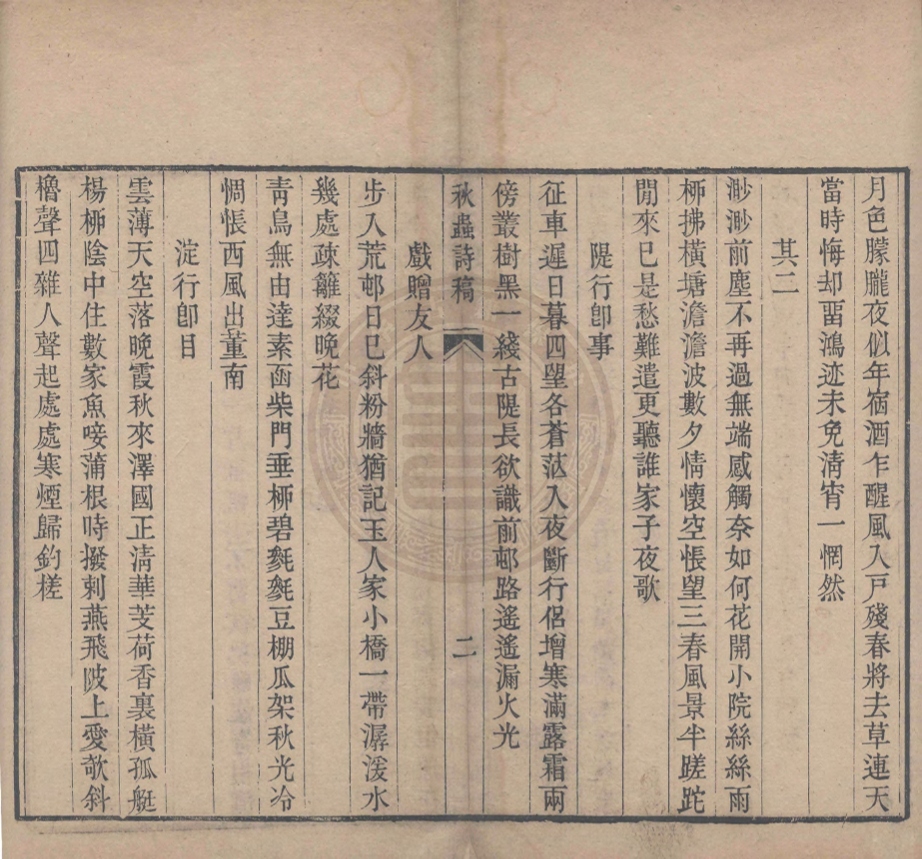 月色朦朧夜似年宿酒乍醒風入戸殘春將去草連天
當時悔却畱鴻迹未免淸宵一惘然
其二
渺渺前塵不再過無端感觸奈如何花開小院絲絲雨
桺拂橫塘澹澹波數夕情懷空悵望三春風景半蹉跎
閒來已是愁難遣更聽誰家子夜歌
隄行卽事
征車遲日暮四望各蒼茫入夜斷行侶增寒滿露霜兩
傍叢樹黑一綫古隄長欲識前邨路遙遙漏火光
秋蟲詩稿 二
戲贈友人
步入荒邨日已斜粉牆猶記玉人家小橋一帶潺湲水
幾處疎籬綴晚花
靑鳥無由達素函柴門垂桺碧毿毿豆棚瓜架秋光冷
惆悵西風出董南
淀行卽目
雲薄天空落晚霞秋來澤國正淸華芰荷香裏橫孤艇
楊桺陰中住數家魚唼蒲根時撥剌燕飛陂上愛欹斜
櫓聲四雜人聲起處處寒煙歸釣槎